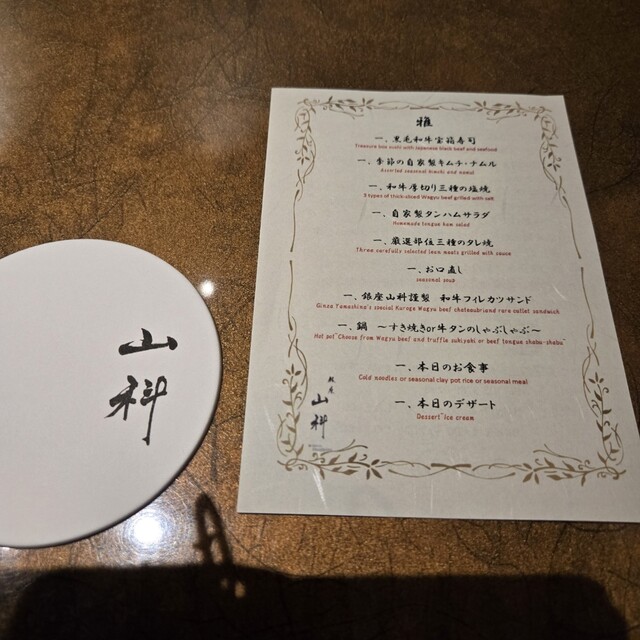 雅
一、黒毛和牛宝箱寿司
Treasure box sushi with Japanese black beef and seafood
一、季節の自家製キムチ・ナムル
Assorted seasonal kimchi and namul
一、和牛厚切り三種の塩焼
3 types of thick-sliced Wagyu beef grilled with salt
一、自家製タンハムサラダ
Homemade tongue ham salad
一、厳選部位三種のタレ焼
Three carefully selected lean meats grilled with sauce
一、お口直し
seasonal soup
一、銀座山科謹製 和牛フィレカツサンド
Ginza Yamashina's special Kuroge Wagyu beef chateaubriand rare cutlet sandwich
一、鍋 〜すき焼きor牛タンのしゃぶしゃぶ〜
Hot pot"Choose from Wagyu beef and truffle sukiyaki or beef tongue shabu-shabu"
一、本日のお食事
Cold noodles or seasonal clay pot rice or seasonal meal
一、本日のデザート
Dessert"Ice cream
銀座
山科
山科